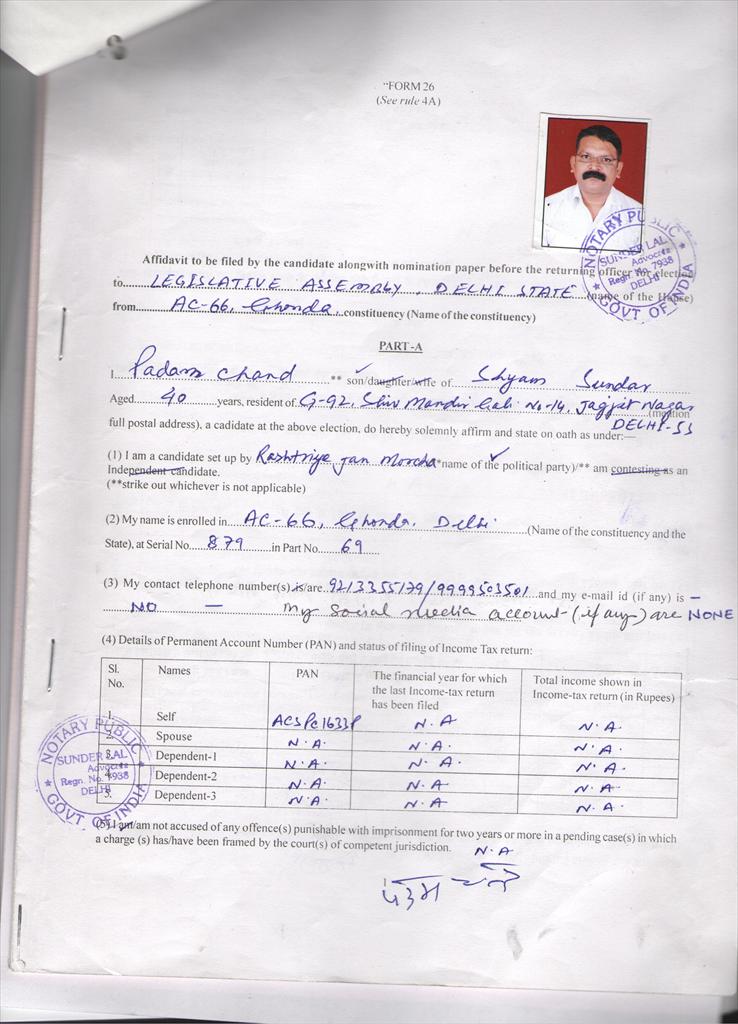 "FORM 26
(See rule 4A)
NOTARY PUBLIC
SUNDER LAL
Advocate
Regn. No. 7938
DELHI
GOVT OF INDIA
Affidavit to be filed by the candidate alongwith nomination paper before the returning officer for election
to.....LEGISLATIVE ASSEMBLY, DELHI STATE (name of the House)
from.....AC-66, Ghonda.....constituency (Name of the constituency)
PART-A
I.....Padam Chand.....** son/daughter/wife of.....Shyam Sundar
Aged.....40.....years, resident of G-92, Shiv Mandir Gali No-14, Jagjit Nagar (mention
DELHI-53
full postal address), a cadidate at the above election, do hereby solemnly affirm and state on oath as under:—
(1) I am a candidate set up by Rashtriya Jan Morcha *name of the political party)/** am contesting as an
Independent candidate.
(**strike out whichever is not applicable)
(2) My name is enrolled in.....AC-66, Ghonda, Delhi.....(Name of the constituency and the
State), at Serial No.....879.....in Part No.....69.....
(3) My contact telephone number(s) is/are 9213355179/9999503501 and my e-mail id (if any) is –
.....NO – My Social Media account (if any) are NONE
(4) Details of Permanent Account Number (PAN) and status of filing of Income Tax return:
Sl. No. Names PAN The financial year for which the last Income-tax return has been filed Total income shown in Income-tax return (in Rupees)
1. Self ACSPC1633P N.A N.A.
2. Spouse N.A. N.A N.A.
3. Dependent-1 N.A. N.A. N.A.
4. Dependent-2 N.A. N.A N.A.
5. Dependent-3 N.A. N.A N.A.
NOTARY PUBLIC
SUNDER LAL
Advocate
Regn. No. 7938
DELHI
GOVT OF INDIA
(5) I am/am not accused of any offence(s) punishable with imprisonment for two years or more in a pending case(s) in which
a charge (s) has/have been framed by the court(s) of competent jurisdiction. N.A
पदम चन्द